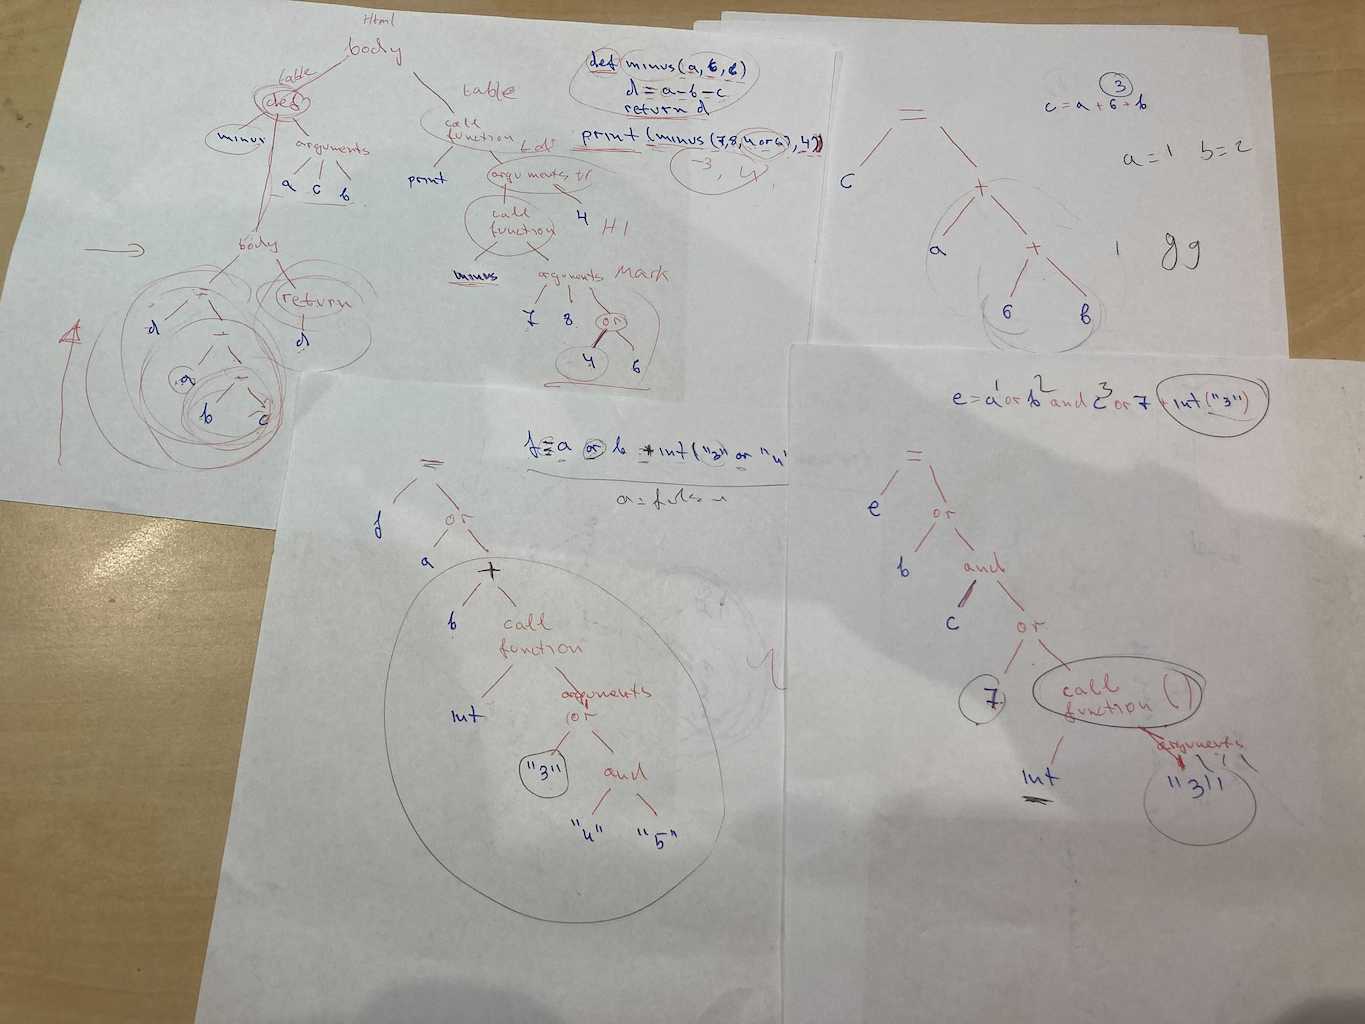 Html
body
table
def
minus
arguments
a c b
body
=
d
-
a
-
b c
return
d
table
call
function
print
arguments tr
call
function
4 H1
minus
arguments Mark
7 8 or
4 6
def minus(a, b, c)
d = a-b-c
return d
print (minus(7,8,4 or 6), 4)
-3, 4
=
c
+
a
+
6 b
3
c = a + 6 + b
a = 1 b = 2
gg
f = a or b + int("3" or "4"
a = fals
=
f
or
a
+
b
call
function
int
arguments
or
"3"
and
"4" "5"
e = a or b and c or 7 + int("3")
1 2 3
=
e
or
b
and
c
or
7
call
function ( )
int
arguments
"3"